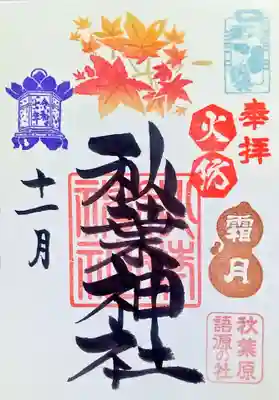 奉拝
火伏
霜月
秋葉原
語源の社
秋葉神社
十一月